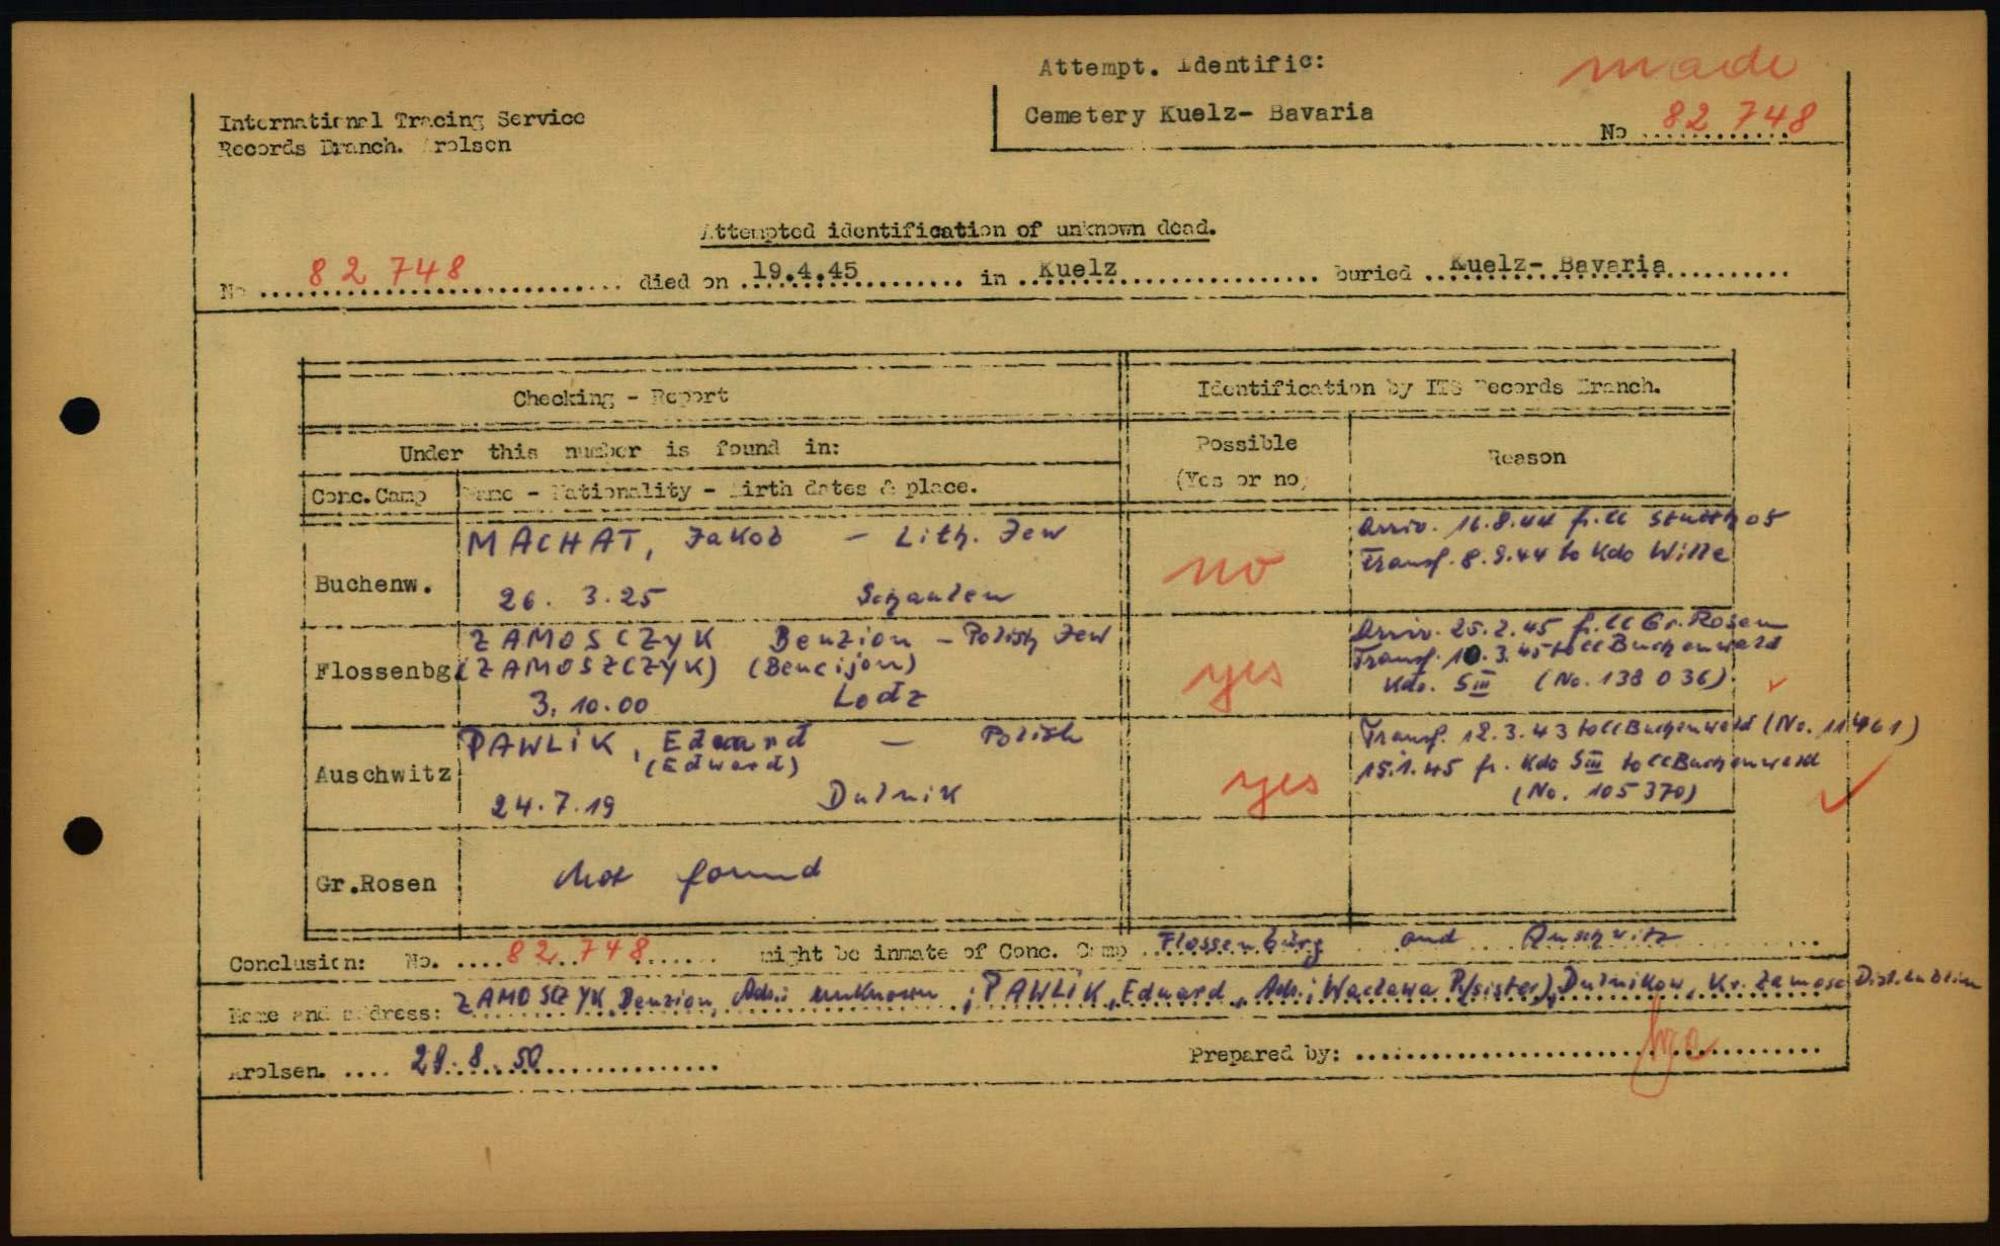 Attempt. Identific:
made
Cemetery Kuelz- Bavaria
No 82 748
International Tracing Service
Records Branch. Arolsen
Attempted identification of unknown dead.
No 82 748 died on 19.4.45 in Kuelz buried Kuelz- Bavaria
Checking - Report
Identification by ITS Records Branch.
Under this number is found in:
Possible
(Yes or no)
Reason
Conc.Camp
Name - Nationality - Birth dates & place.
Buchenw.
MACHAT, Jakob - Lith. Jew
26. 3.25 Schaulen
no
Arriv. 16.8.44 fr. CC Stutthof
Transf. 8.9.44 to Kdo Wille
Flossenbg
ZAMOSCZYK Benzion - Polish Jew
(ZAMOSZCZYK) (Bencijon)
3. 10.00 Lodz
yes
Arriv. 25.2.45 fr. CC Gr. Rosen
Transf. 10.3.45 to CC Buchenwald
Kdo. S III (No. 138 036).
Auschwitz
PAWLIK, Eduard - Polish
(Edward)
24.7.19 Dulnik
yes
Transf. 12.3.43 to CC Buchenwald (No. 11461)
15.1.45 fr. Kdo S III to CC Buchenwald
(No. 105 370)
Gr.Rosen
Not found
Conclusion: No. 82 748 might be inmate of Conc. Camp Flossenbürg and Auschwitz
Name and address: ZAMOSCZYK Benzion, Adr.: unknown ; PAWLIK, Eduard, Adr.: Waclawa P. (sister), Dulnikow, Kr. Zamosc Dist. Lublin
Arolsen. 29.8.50
Prepared by: